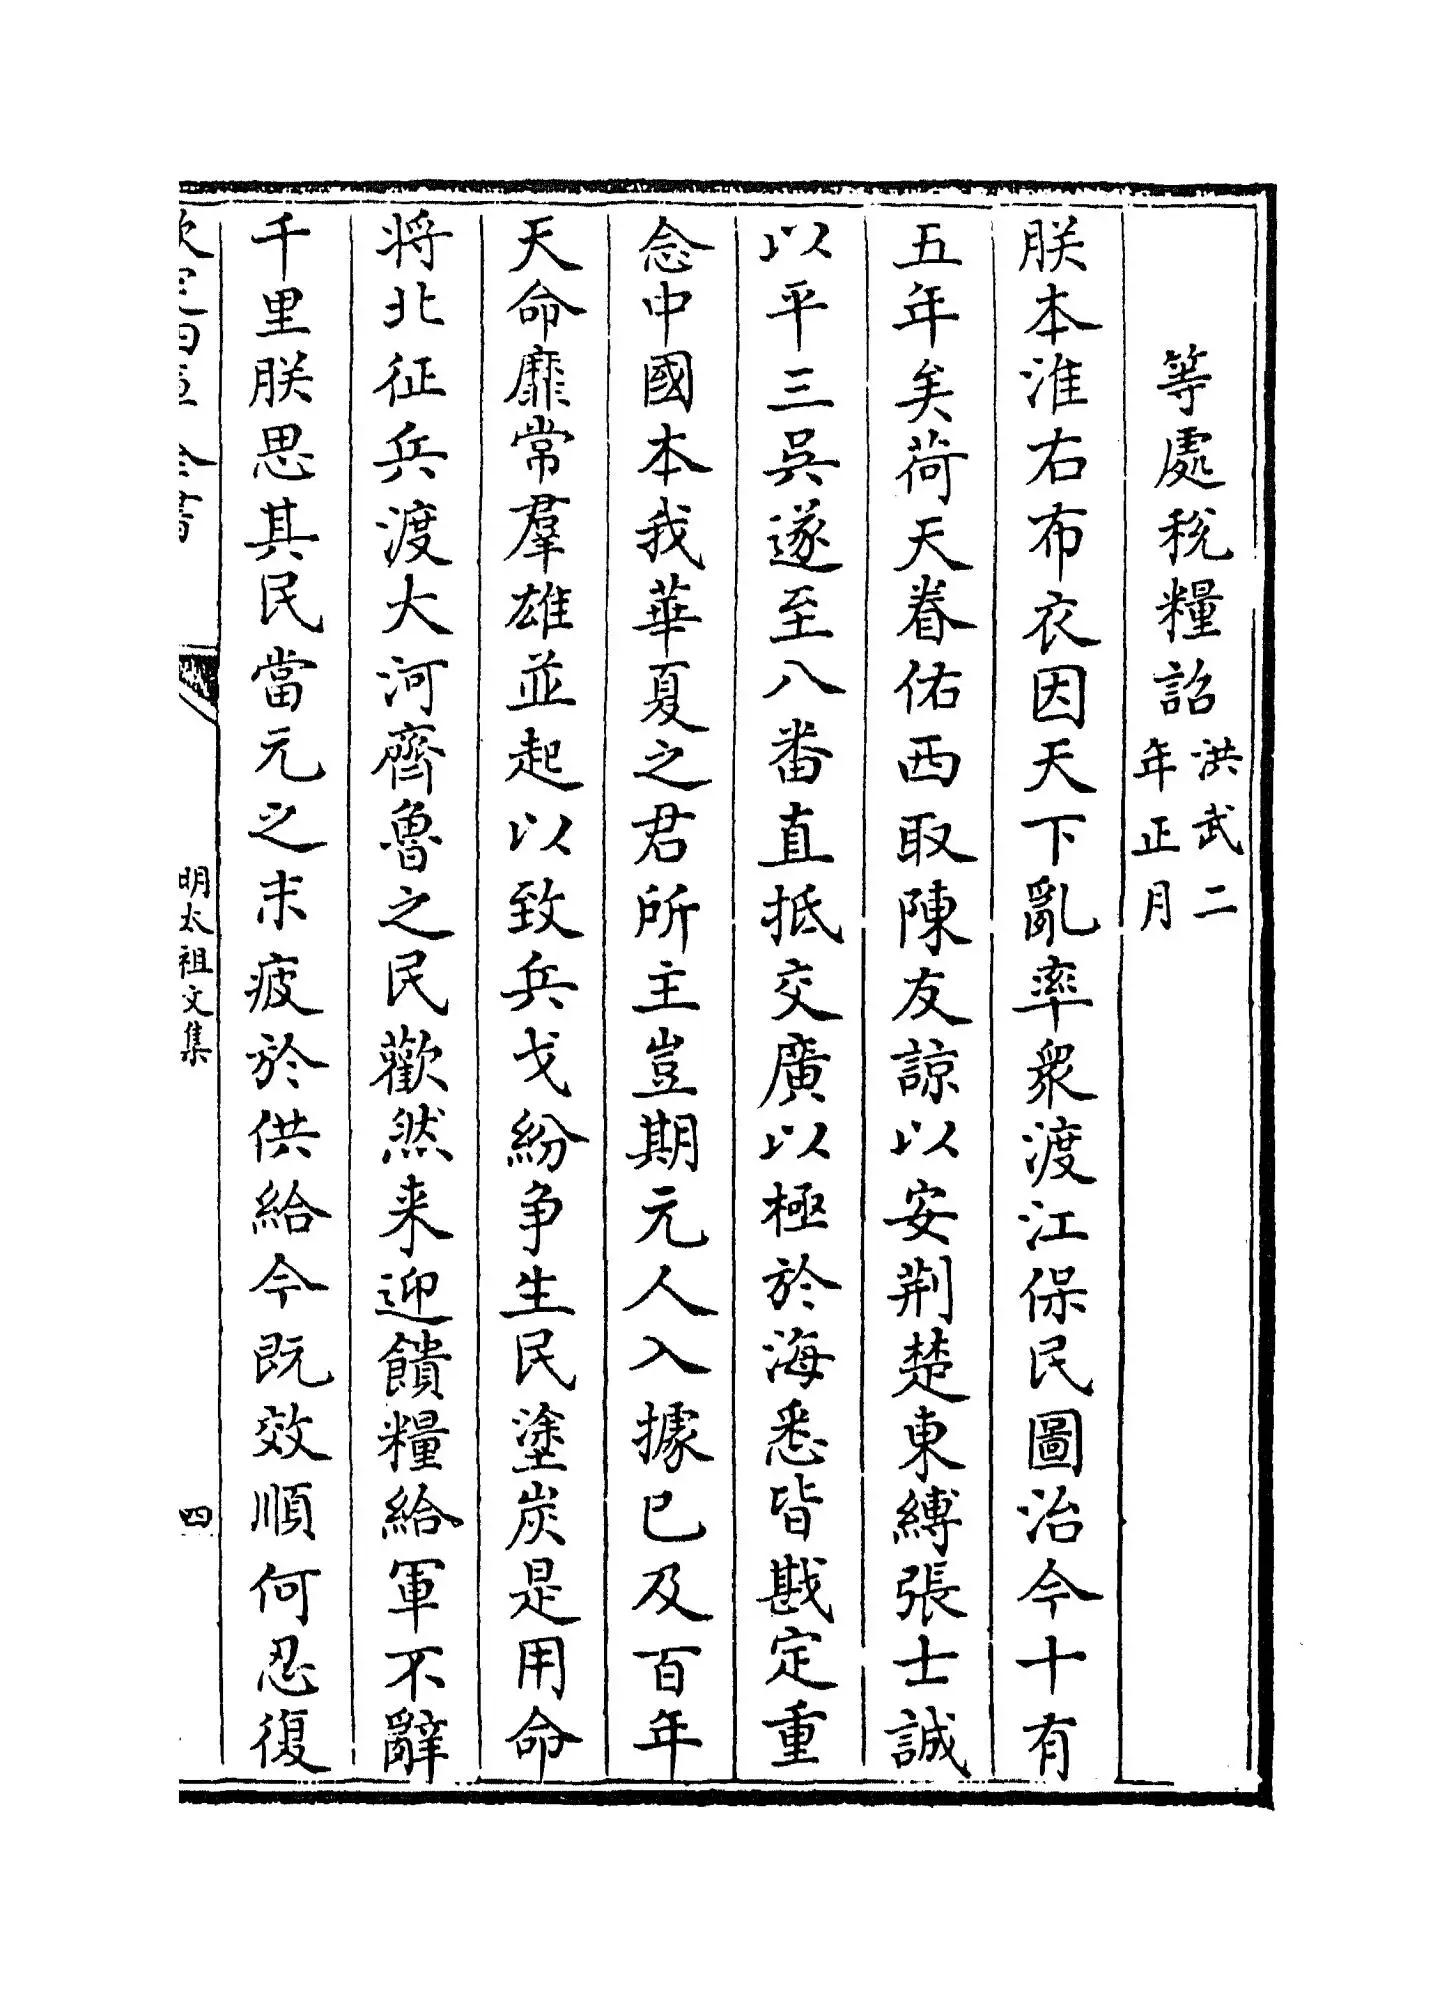 等處稅糧詔洪武二
年正月
朕本淮右布衣因天下亂率衆渡江保民圖治今十有
五年矣荷天眷佑西取陳友諒以安荆楚東縛張士誠
以平三吳遂至八番直抵交廣以極於海悉皆戡定重
念中國本我華夏之君所主豈期元人入據已及百年
天命靡常羣雄並起以致兵戈紛争生民塗炭是用命
将北征兵渡大河齊魯之民歡然来迎饋糧給軍不辭
千里朕思其民當元之末疲於供給今既效順何忍復
欽定四庫全書
明太祖文集
四